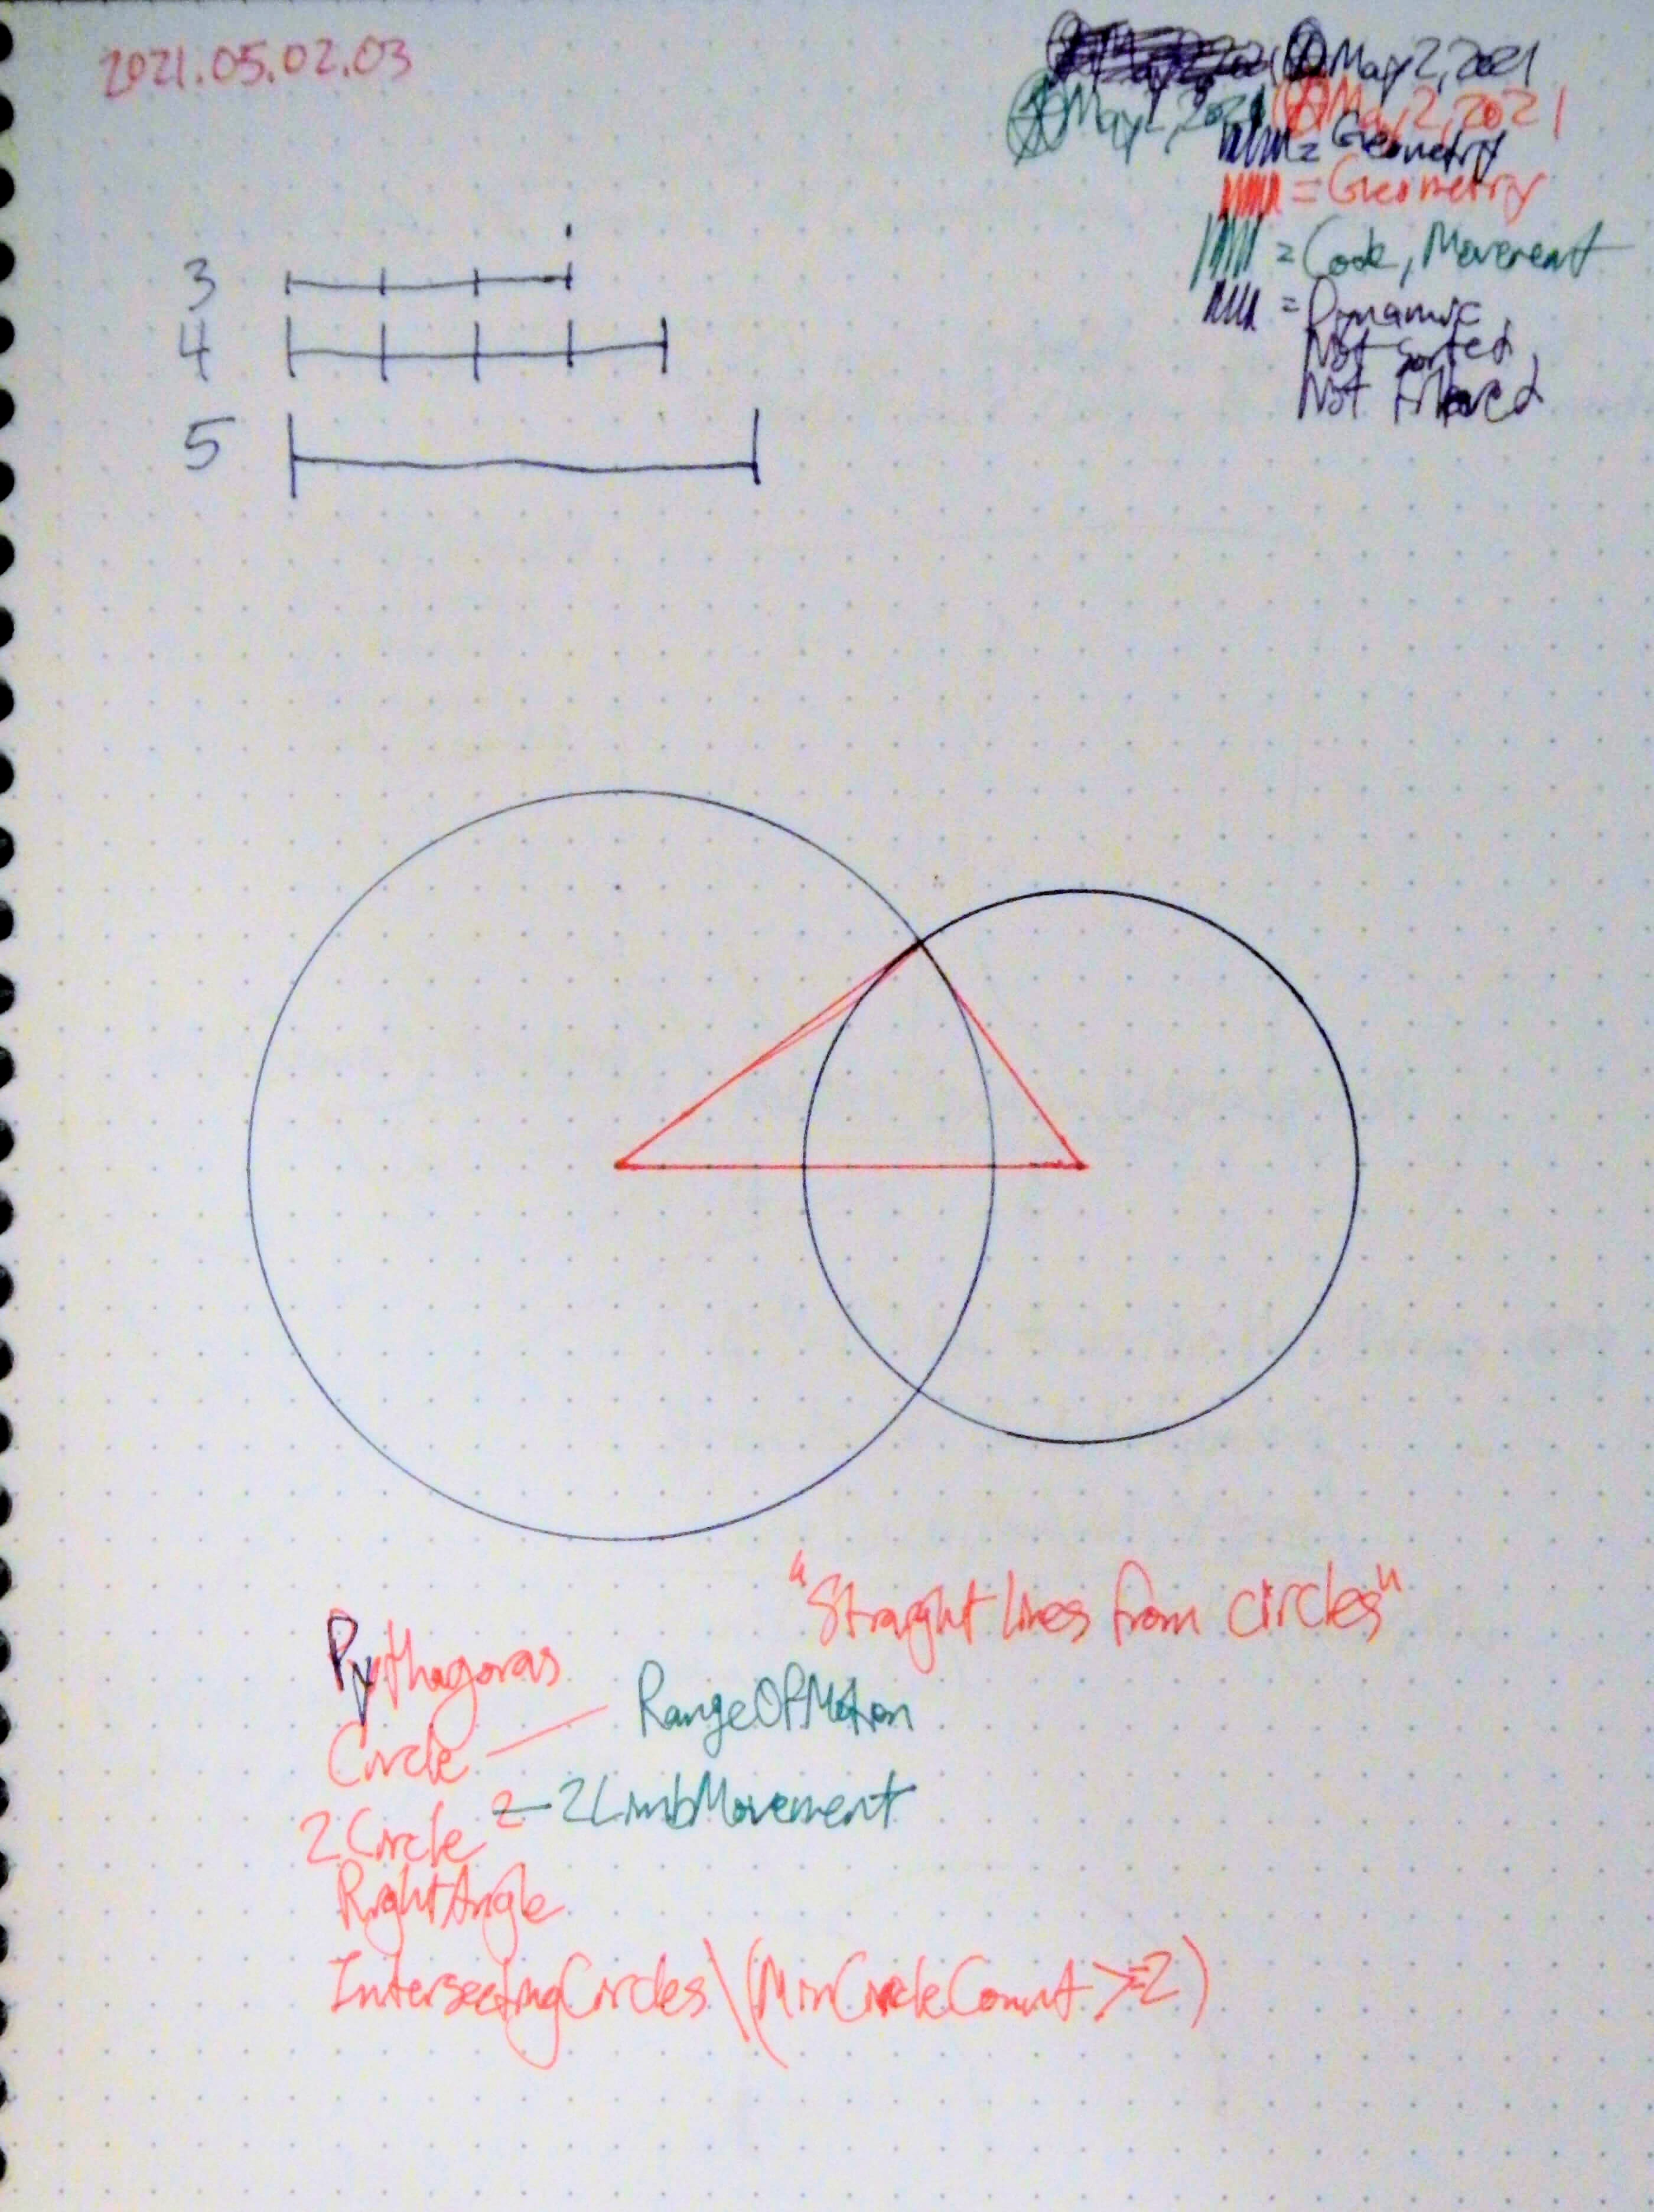 2021.05.02.03
May 2, 2021
May 2, 2021 May 2, 2021
= Geometry
= Geometry
= Code, Movement
= Dynamic,
Not Sorted,
Not Filtered
3
4
5
"Straight lines from circles"
Pythagoras
Circle — RangeOfMotion
2Circle — 2LimbMovement
RightAngle
IntersectingCircles\(MinCircleCount >=2)